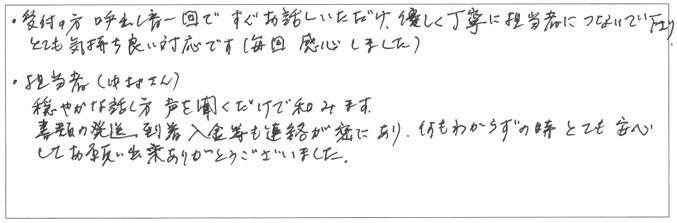 ・受付の方 呼出し音一回で すぐお話しいただけ、優しく丁寧に担当者につないで下さり
とても気持ち良い対応です(毎回 感心しました)
・担当者(中村さん)
穏やかな話し方 声を聞くだけで和みます。
書類の発送、到着、入金等も連絡が密にあり、何もわからずの時 とても安心
してお願い出来ありがとうございました。